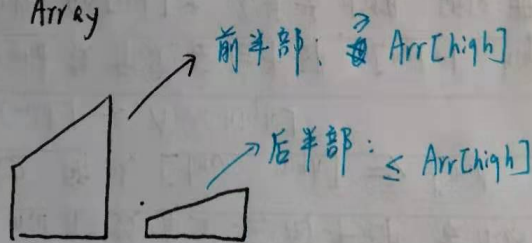 Array
前半部: > Arr[high]
后半部: ≤ Arr[high]